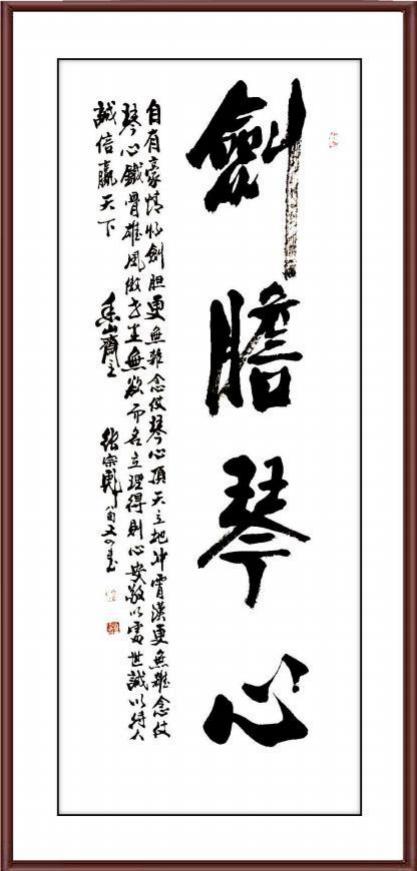 劍膽琴心
自有豪情托劍胆更無雜念伏琴心頂天立地冲霄漢更無雜念伏
琴心鐵骨雄風傲立無欲而名立理得則心安敬以處世誠以待人
誠信贏天下 香山齋主 張宗彪